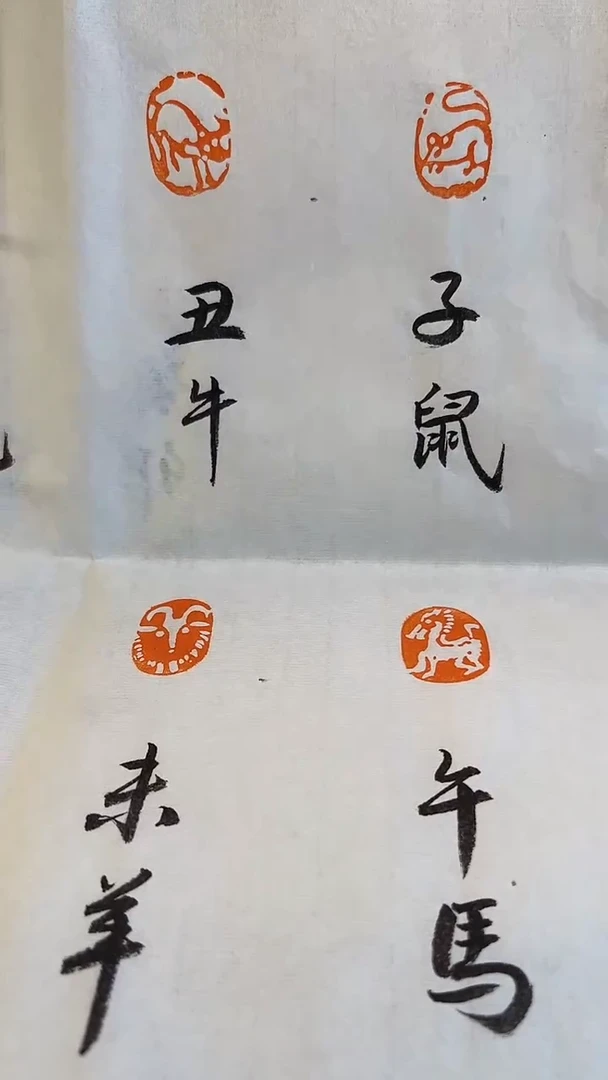 子鼠
丑牛
午馬
未羊